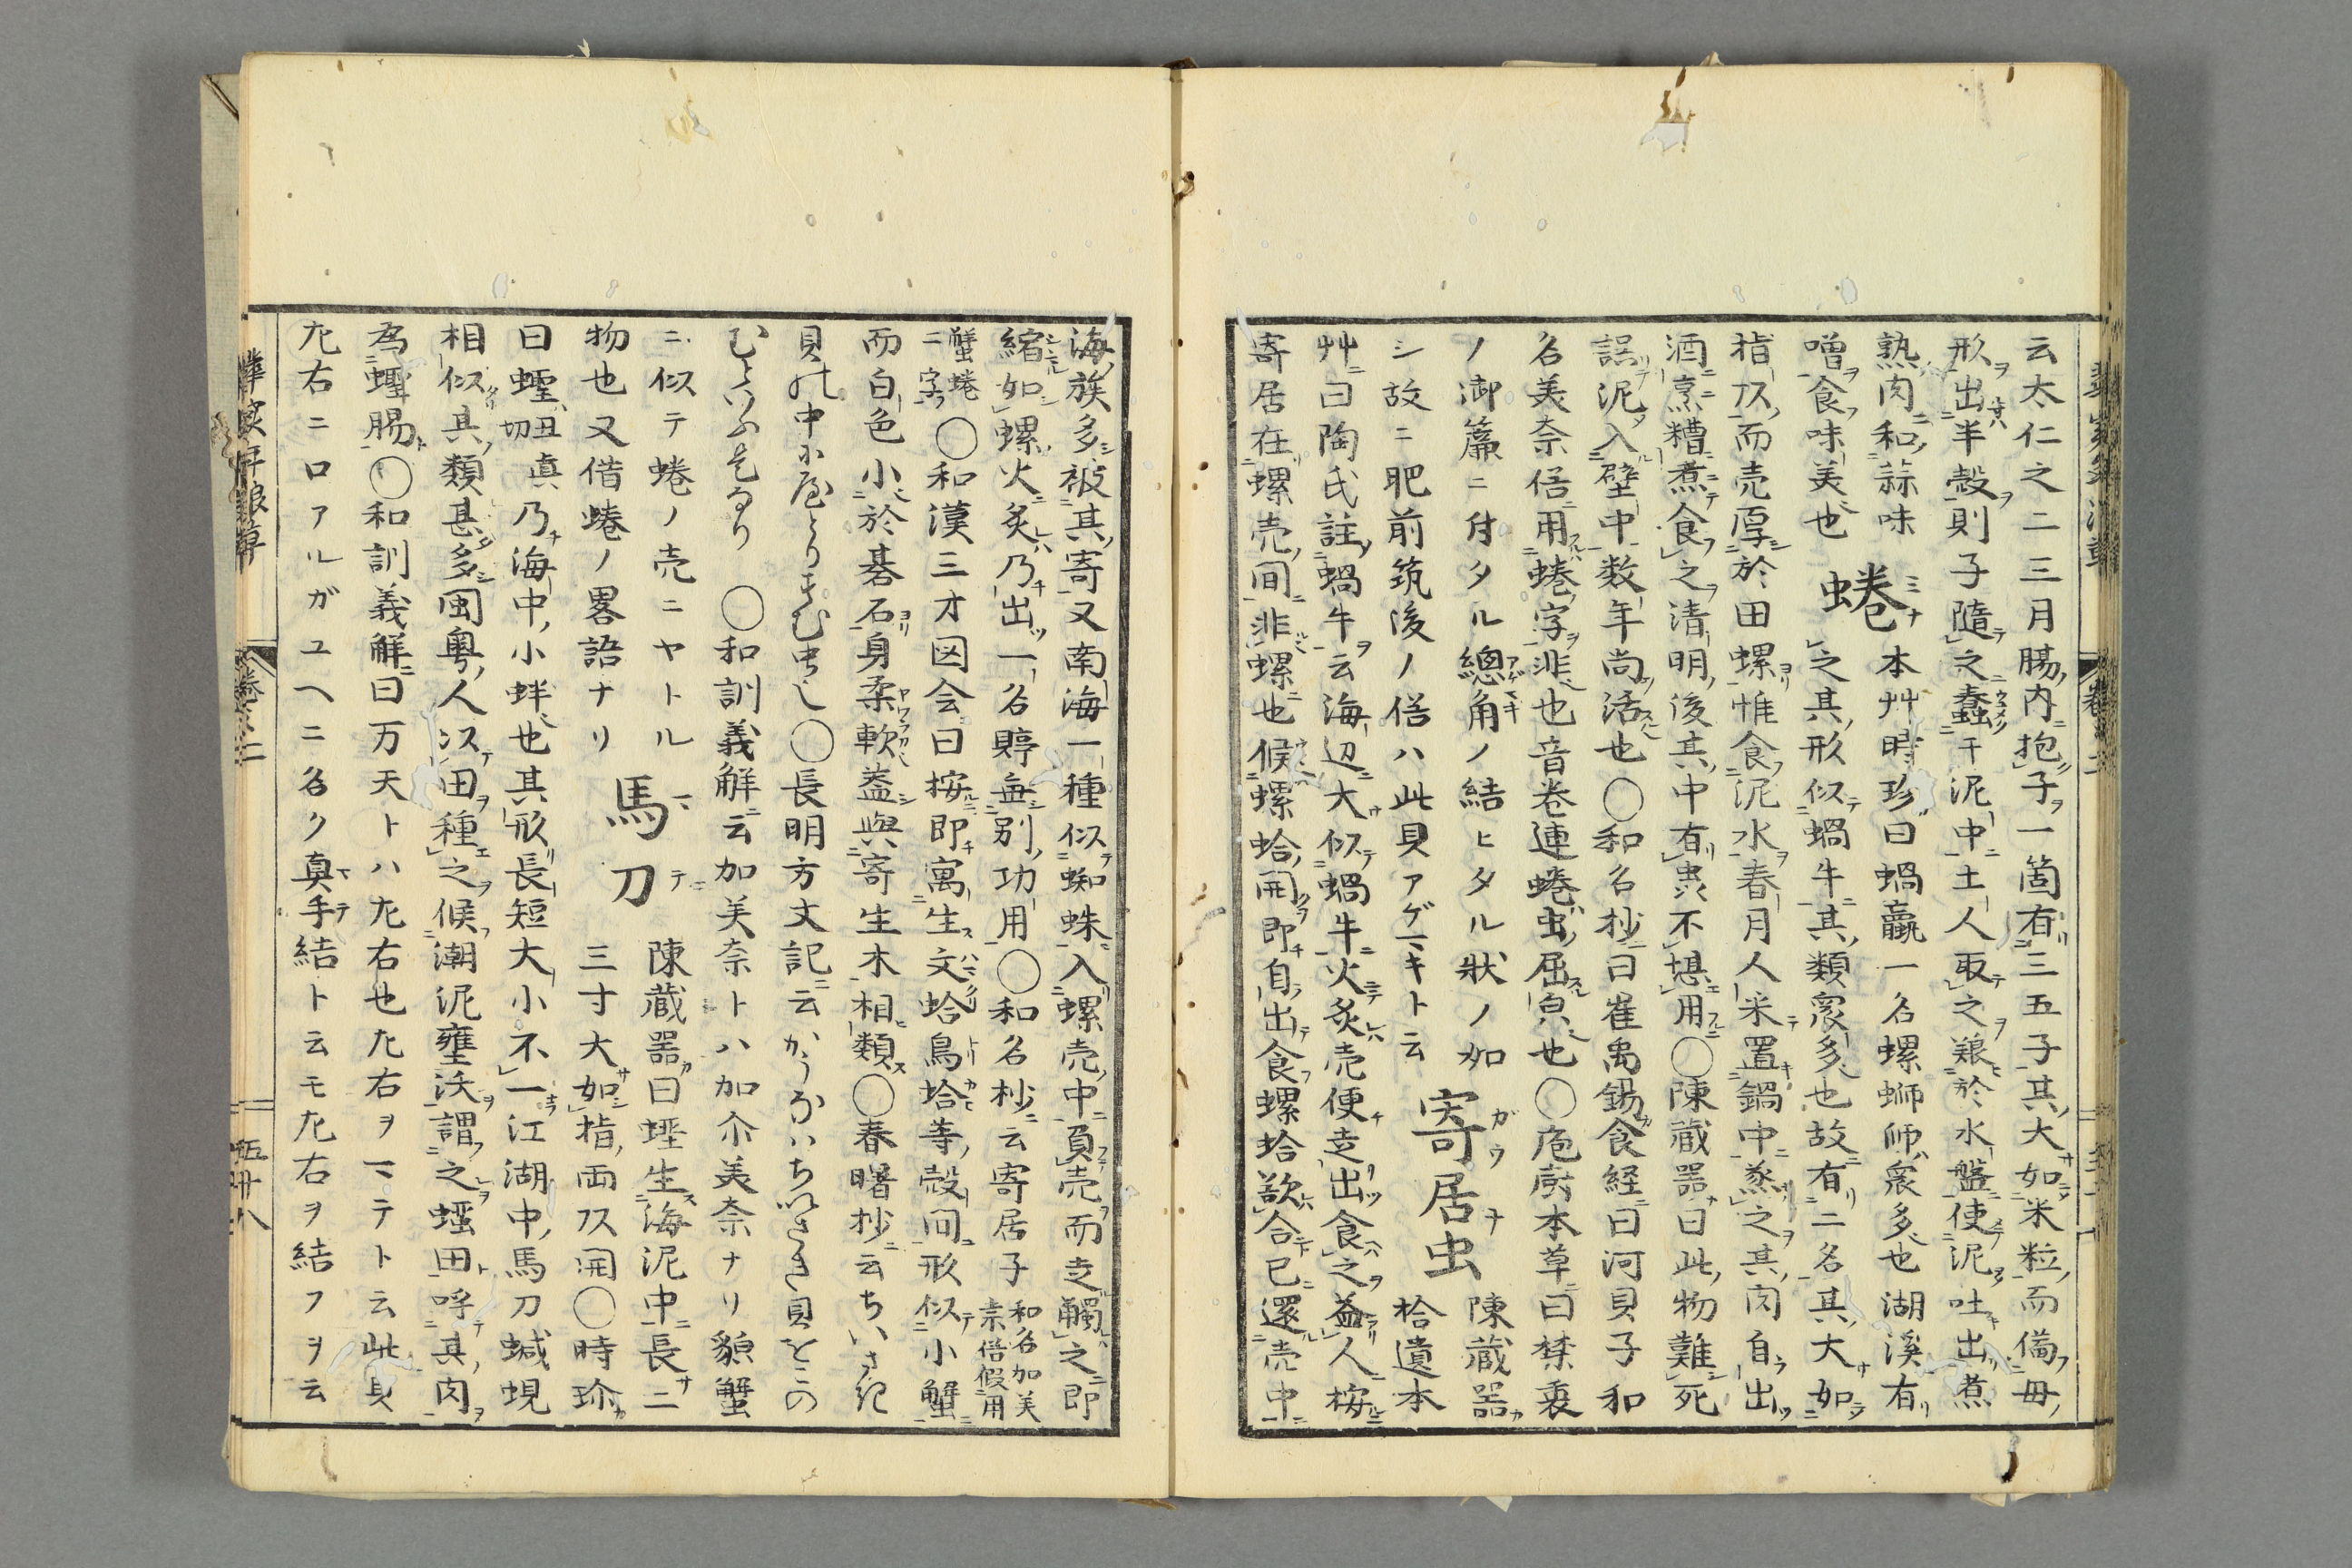 云太仁之二三月腸内抱子一箇有三五子其大如米粒而備母
形出半殻則子隨之蠢于泥中土人取之艱於水盤使泥吐出煮
熟肉和蒜味
噌食味美也
蜷 ミナ
本艸時珍曰蝸蠃一名螺螄師衆多也湖溪有
之其形似蝸牛其類衆多也故有二名其大如
指頭而売厚於田螺惟食泥水春月人采置鍋中蒸之其肉自出
酒烹糟煮食之清明後其中有虫不堪用〇陳蔵器曰此物難死
誤泥入壁中数年尚活也〇和名抄曰崔禹錫食経曰河貝子和
名美奈俗用蜷字非也音巻連蜷虫屈皃也〇庖厨本草曰禁裏
ノ御簾ニ付タル總角ノ結ヒタル狀ノ如
シ故ニ肥前筑後ノ俗ハ此貝アゲマキト云
寄居虫 ガウナ
陳蔵器
拾遺本
艸曰陶氏註蝸牛云海辺大似蝸牛火炙売便走出食之益人桉
寄居在螺売間非螺也候螺蛤開即自出食螺蛤欲合已還売中
海族多被其寄又南海一種似蜘蛛入螺売中負売而走觸之即
縮如螺火炙乃出一名𧐐無別功用〇和名抄云寄居子 和名加美奈俗假用
蟹蜷二字 〇和漢三才図会曰桉即寓生文蛤鳥蛤等殻間形似小蟹
而白色小於碁石身柔軟蓋與寄生木相類〇春曙抄云ちいさき
貝の中に屋とりすむ虫し〇長明方丈記云かうなハちいさき貝をこの
むといふ是なり 〇和訓義解云加美奈トハ加介美奈ナリ貌蟹
ニ似テ蜷ノ売ニヤトル
物也又借蜷ノ畧語ナリ
馬刀 マテ
陳蔵器曰蟶生海泥中長二
三寸大如指両頭開〇時珍
曰蟶丑真切乃海中小蚌也其形長短大小不一江湖中馬刀蝛蜆
相似其類甚多閩粵人以田種之候潮泥壅沃謂之蟶田呼其肉
為蟶腸〇和訓義解曰万天トハ左右也左右ヲマテト云此貝
左右ニ口アルガユヘニ名ク真手結ト云モ左右ヲ結フヲ云
巻之二
五十八